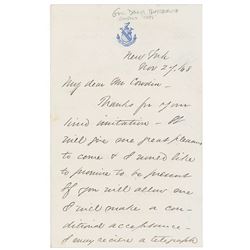 New York
Nov 27/68
My dear Mr Cowdin -
Thanks for your
kind invitation - It
will give me great pleasure
to come & I would like
to promise to be present
If you will allow me
I will make a con-
ditional acceptance -
I may receive a telegraph